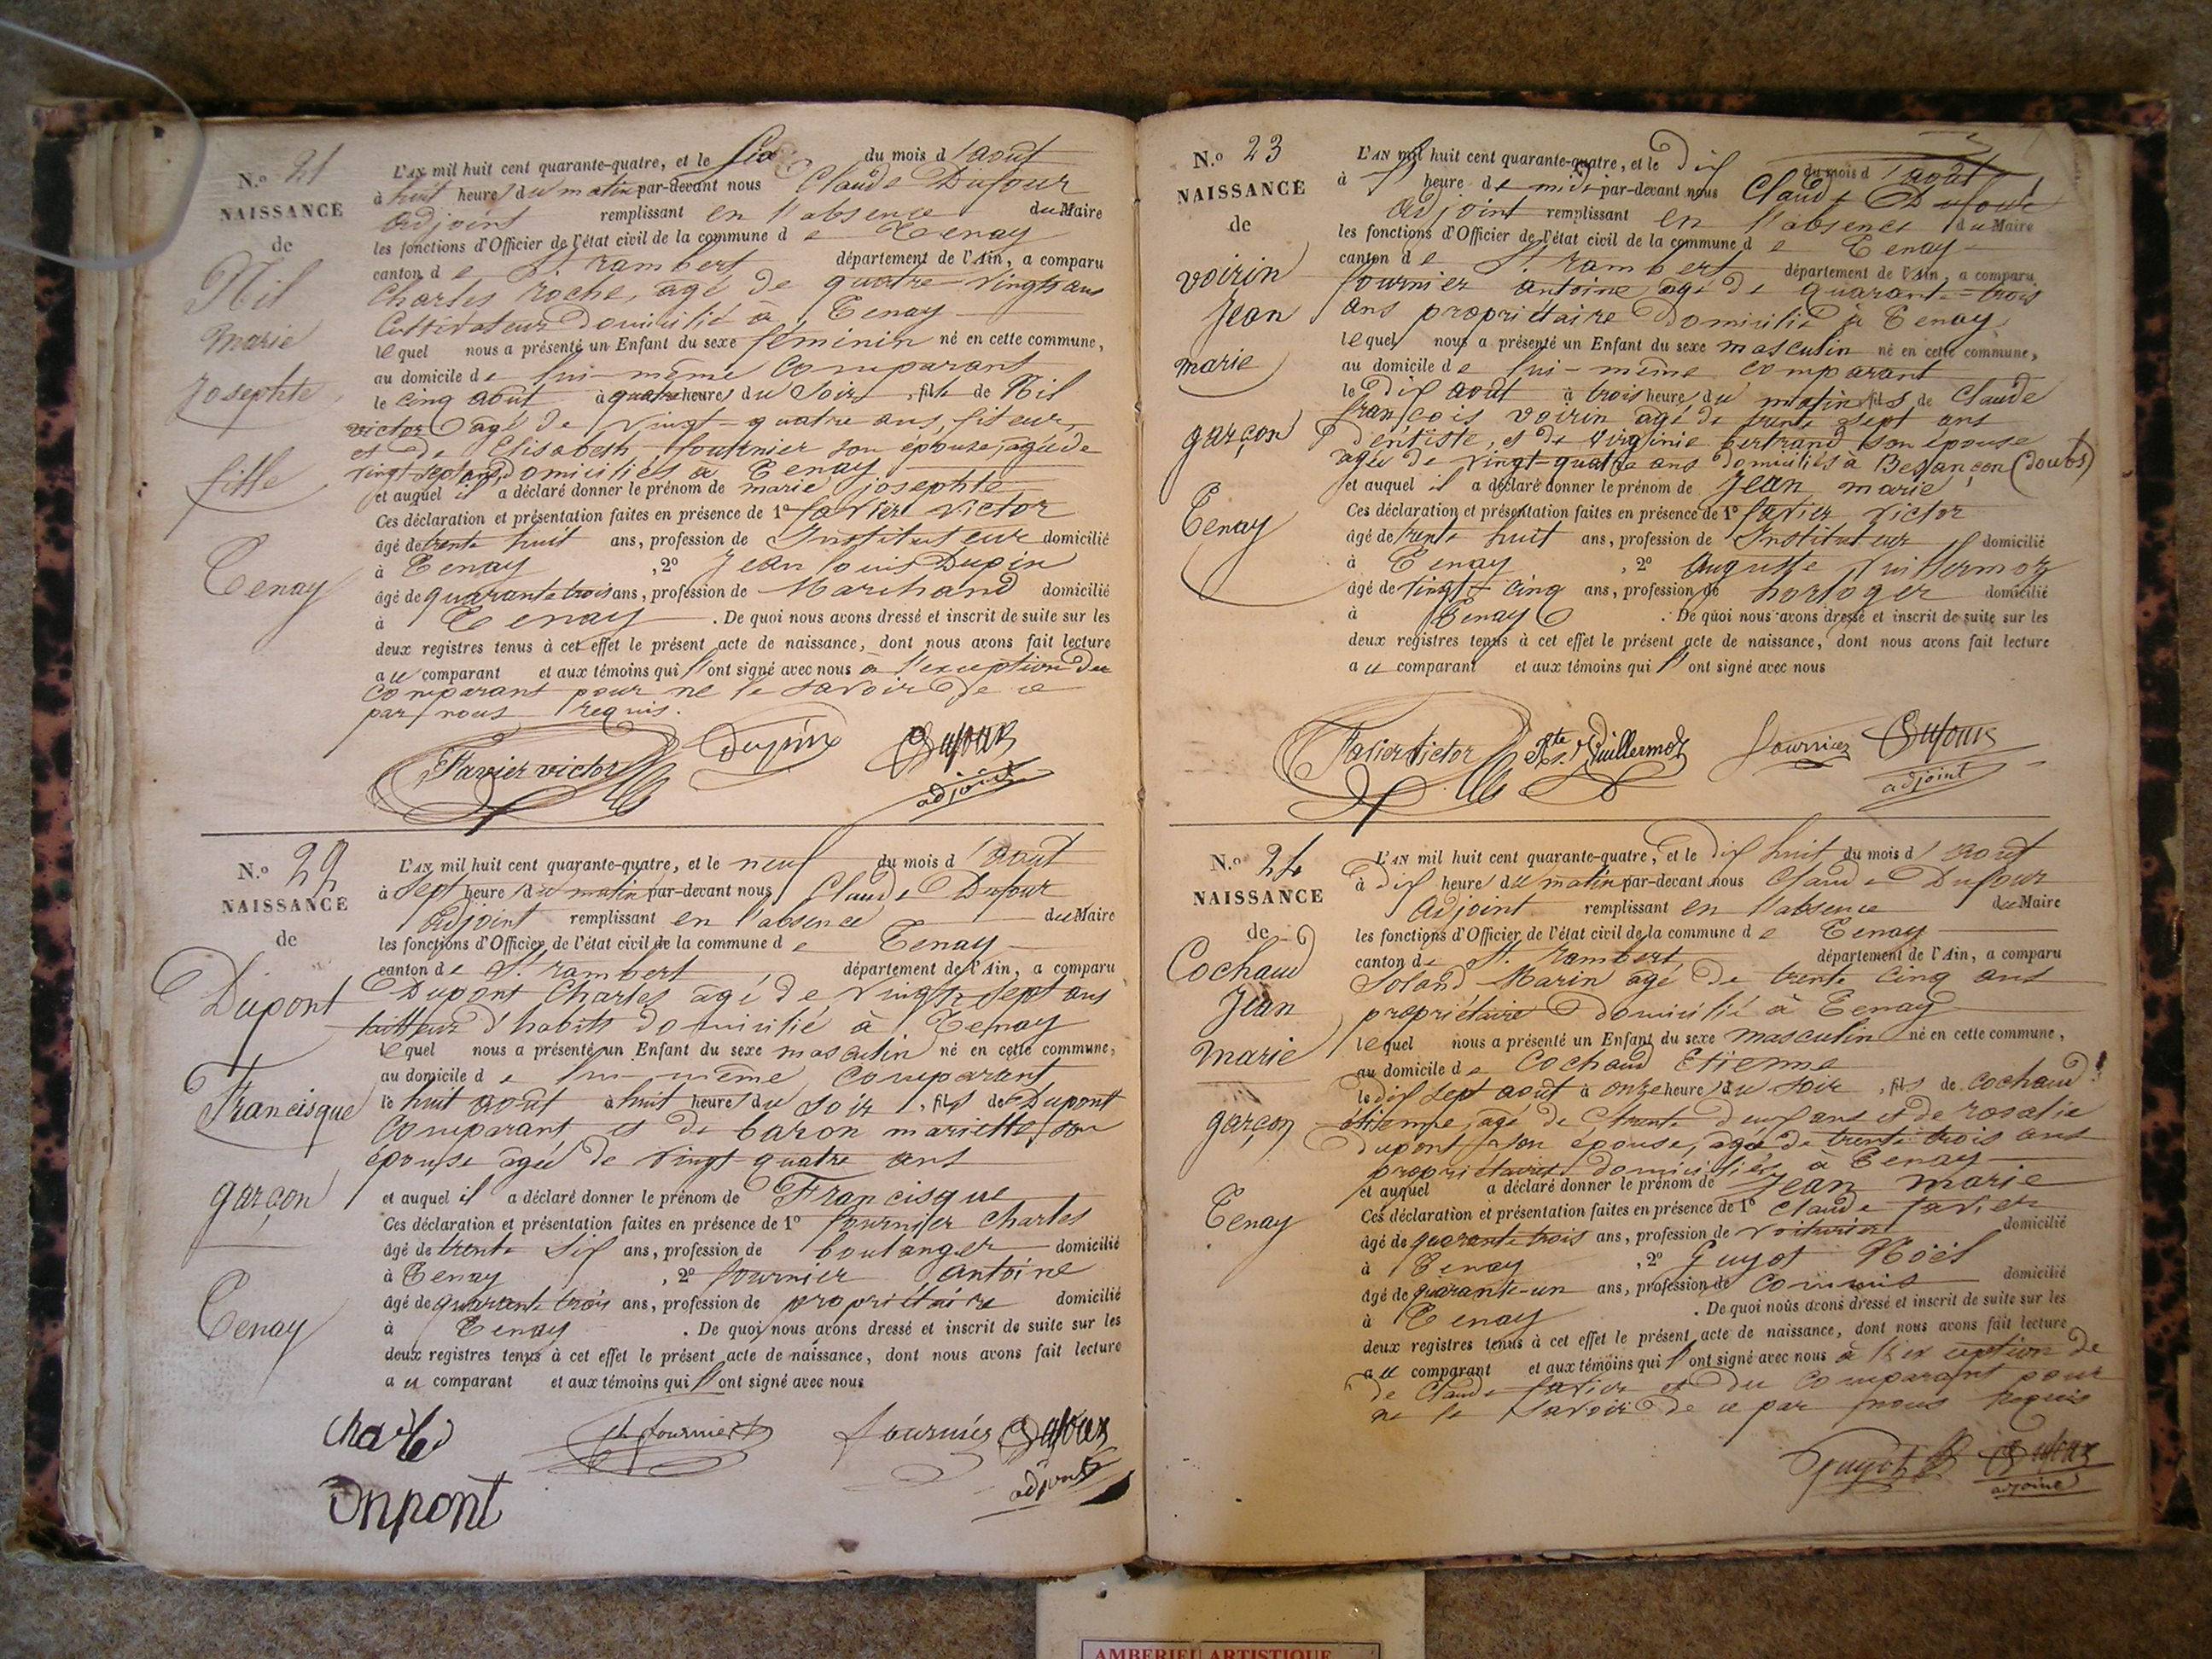 N.º 21
NAISSANCE
de
Nil
marie
josephte
fille
Tenay
L'AN mil huit cent quarante-quatre, et le six du mois d'août
à huit heures du matin par-devant nous Claude Dufour
adjoint remplissant en l'absence du Maire
les fonctions d'Officier de l'état civil de la commune de Tenay
canton de St. rambert département de l'Ain, a comparu
Charles roche, agé de quatre-vingts ans
Cultivateur domicilié à Tenay
lequel nous a présenté un Enfant du sexe féminin né en cette commune,
au domicile de lui-même comparant
le cinq août à quatre heures du soir, fille de Nil
victor agé de vingt-quatre ans,
et de Elisabeth fournier son épouse, agée de
vingt-sept ans, domiciliés à Tenay
et auquel il a déclaré donner le prénom de marie josephte
Ces déclaration et présentation faites en présence de 1º favier victor
âgé de trente huit ans, profession de Instituteur domicilié
à Tenay, 2º Jean louis Dupin
âgé de quarante trois ans, profession de Marchand domicilié
à Tenay. De quoi nous avons dressé et inscrit de suite sur les
deux registres tenus à cet effet le présent acte de naissance, dont nous avons fait lecture
au comparant et aux témoins qui l'ont signé avec nous à l'exception du
comparant pour ne le savoir de ce
par nous requis.
Favier victor Dupin Dufour
adjoint
N.º 22
NAISSANCE
de
Dupont
Francisque
garçon
Tenay
L'AN mil huit cent quarante-quatre, et le neuf du mois d'août
à sept heure du matin par-devant nous Claude Dufour
adjoint remplissant en l'absence du Maire
les fonctions d'Officier de l'état civil de la commune de Tenay
canton de St. rambert département de l'Ain, a comparu
Dupont Charles agé de vingt-sept ans
tailleur d'habits domicilié à Tenay
lequel nous a présenté un Enfant du sexe masculin né en cette commune,
au domicile de lui-même comparant
le huit août à huit heures du soir, fils de Dupont
comparant et de baron mariette son
épouse agée de vingt-quatre ans
et auquel il a déclaré donner le prénom de Francisque
Ces déclaration et présentation faites en présence de 1º fournier charles
âgé de trente six ans, profession de boulanger domicilié
à Tenay, 2º fournier antoine
âgé de quarante trois ans, profession de propriétaire domicilié
à Tenay. De quoi nous avons dressé et inscrit de suite sur les
deux registres tenus à cet effet le présent acte de naissance, dont nous avons fait lecture
au comparant et aux témoins qui l'ont signé avec nous
Charles ch fournier fournier Dufour
Dupont adjoint
N.º 23
NAISSANCE
de
voirin
Jean
marie
garçon
Tenay
L'AN mil huit cent quarante-quatre, et le dix du mois d'août
à heure de midi par-devant nous Claude Dufour
adjoint remplissant en l'absence du Maire
les fonctions d'Officier de l'état civil de la commune de Tenay
canton de St. rambert département de l'Ain, a comparu
fournier antoine agé de quarante-trois
ans propriétaire domicilié à Tenay
lequel nous a présenté un Enfant du sexe masculin né en cette commune,
au domicile de lui-même comparant
le dix août à trois heures du matin fils de Claude
françois voirin agé de trente sept ans
dentiste, et de virginie bertrand son épouse
agée de vingt-quatre ans domiciliés à Besançon (doubs)
et auquel il a déclaré donner le prénom de Jean marie
Ces déclaration et présentation faites en présence de 1º favier victor
âgé de trente huit ans, profession de Instituteur domicilié
à Tenay, 2º auguste Vuillermoz
âgé de vingt cinq ans, profession de horloger domicilié
à Tenay. De quoi nous avons dressé et inscrit de suite sur les
deux registres tenus à cet effet le présent acte de naissance, dont nous avons fait lecture
au comparant et aux témoins qui l'ont signé avec nous
Favier victor Vuillermoz fournier Dufour
adjoint
N.º 24
NAISSANCE
de
Cochaud
Jean
marie
garçon
Tenay
L'AN mil huit cent quarante-quatre, et le dix huit du mois d'août
à dix heure du matin par-devant nous Claude Dufour
adjoint remplissant en l'absence du Maire
les fonctions d'Officier de l'état civil de la commune de Tenay
canton de St. rambert département de l'Ain, a comparu
Soland Marin agé de trente cinq ans
propriétaire domicilié à Tenay
lequel nous a présenté un Enfant du sexe masculin né en cette commune,
au domicile de Cochaud Etienne
le dix sept août à onze heure du soir, fils de cochaud
étienne, agé de trente deux ans et de rosalie
dupont son épouse, agée de trente trois ans
propriétaires domiciliés à Tenay
et auquel a déclaré donner le prénom de Jean marie
Ces déclaration et présentation faites en présence de 1º claude favier
âgé de quarante trois ans, profession de voiturier domicilié
à Tenay, 2º Guyot Noël
âgé de quarante-un ans, profession de commis domicilié
à Tenay. De quoi nous avons dressé et inscrit de suite sur les
deux registres tenus à cet effet le présent acte de naissance, dont nous avons fait lecture
au comparant et aux témoins qui l'ont signé avec nous à l'exception de
de Claude favier et du comparant pour
ne le savoir de ce par nous requis
Guyot Dufour
adjoint
AMBERIEU ARTISTIQUE